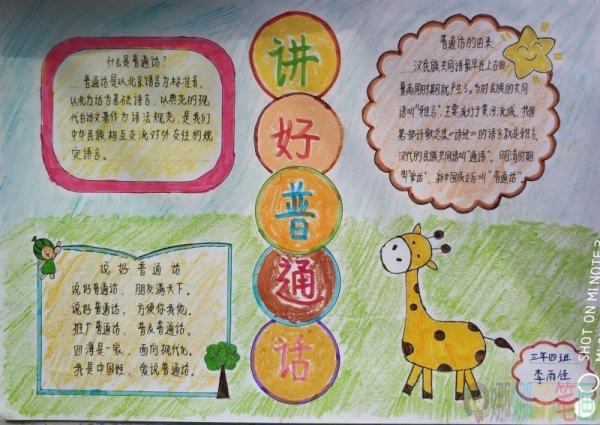 讲
好
普
通
话
什么是普通话?
普通话是以北京语言为标准音,
以北方话为基础语言,以典范的现
代白话文著作为语法规范,是我们
中华民族相互交流对外交往的规
定语言。
普通话的由来
汉民族共同语最早在上古的
夏商周时期就产生了。当时民族的共同
语叫"雅言",主要流行于黄河流域,我国
第一部诗歌总集《诗经》的语言就是雅言,
汉代的民族共同语叫"通语",明清时期
叫"官话",新中国成立后叫"普通话"
说好普通话
说好普通话,朋友满天下。
说好普通话,方便你我他。
推广普通话,普及普通话。
四海是一家,面向现代化。
我是中国娃,爱说普通话。
三年四班
李雨佳
SHOT ON MI NOTE 3